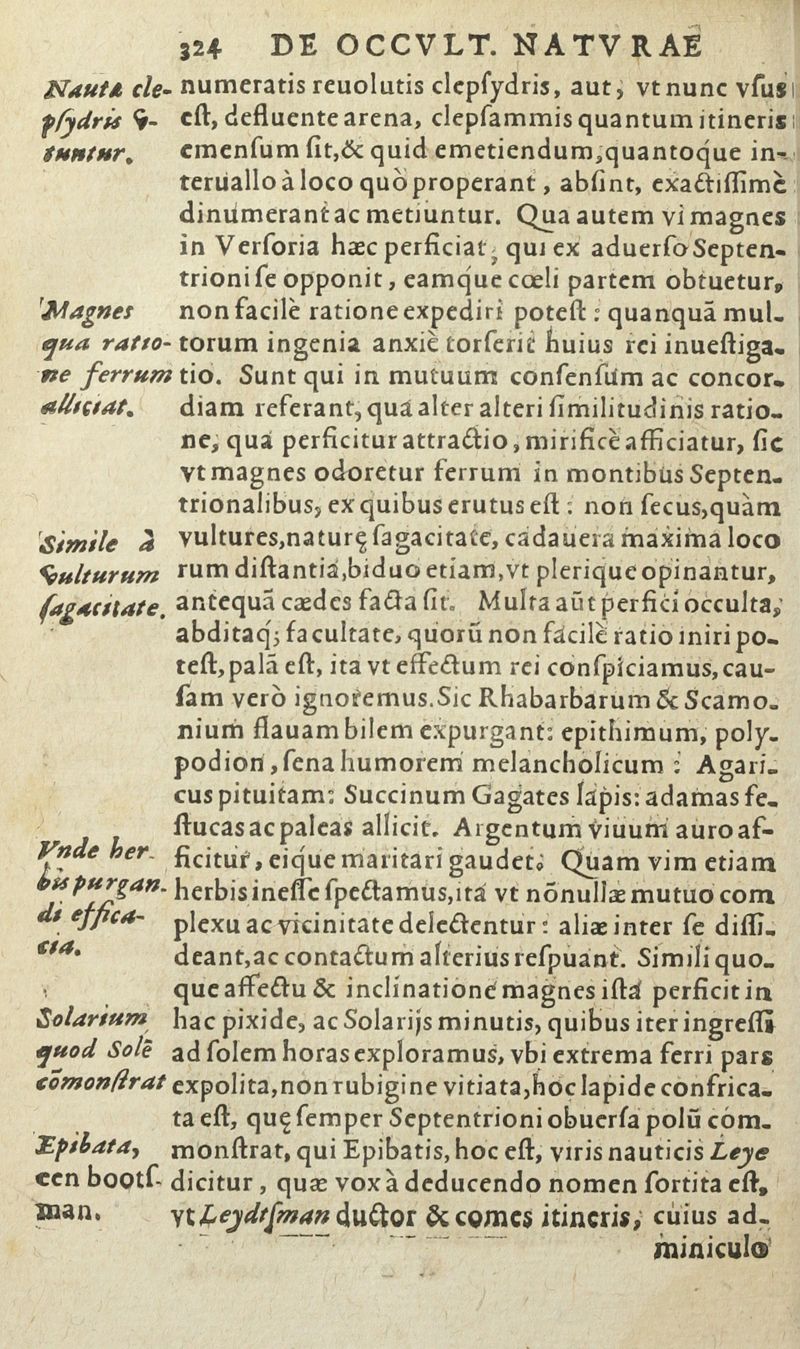 324 DE OCCVLT. NATVRAE
Nautæ cle-
pſydris v-
tuntur.
numeratis reuolutis clepſydris, aut, vt nunc vſus
eſt, defluente arena, clepſammis quantum itineris
emenſum ſit, & quid emetiendum, quantoque in-
teruallo à loco quò properant, abſint, exactiſſimè
dinumerant ac metiuntur. Qua autem vi magnes
in Verſoria hæc perficiat, qui ex aduerſo Septen-
trioni ſe opponit, eamque cœli partem obtuetur,
Magnes
qua ratio-
ne ferrum
alliciat.
non facilè ratione expediri poteſt: quanquā mul-
torum ingenia anxiè torſerit huius rei inueſtiga-
tio. Sunt qui in mutuum conſenſum ac concor-
diam referant, qua alter alteri ſimilitudinis ratio-
ne, qua perficitur attractio, mirificè afficiatur, ſic
vt magnes odoretur ferrum in montibus Septen-
trionalibus, ex quibus erutus eſt: non ſecus, quàm
Simile à
vulturum
ſagacitate.
vultures, naturę ſagacitate, cadauera maxima loco
rum diſtantia, biduo etiam, vt plerique opinantur,
antequā cædes facta ſit. Multa aūt perfici occulta,
abditaq; facultate, quorū non facilè ratio iniri po-
teſt, palā eſt, ita vt effectum rei conſpiciamus, cau-
ſam verò ignoremus. Sic Rhabarbarum & Scamo-
nium flauam bilem expurgant: epithimum, poly-
podion, ſena humorem melancholicum: Agari-
cus pituitam: Succinum Gagates lapis: adamas fe-
ſtucas ac paleas allicit. Argentum viuum auro af-
Vnde her-
bis purgan-
di effica-
cia.
ficitur, eique maritari gaudet. Quam vim etiam
herbis ineſſe ſpectamus, ita vt nōnullæ mutuo com
plexu ac vicinitate delectentur: aliæ inter ſe diſſi-
deant, ac contactum alterius reſpuant. Simili quo-
que affectu & inclinatione magnes iſta perficit in
Solarium
quod Solē
cōmonſtrat
hac pixide, ac Solarijs minutis, quibus iter ingreſſi
ad ſolem horas exploramus, vbi extrema ferri pars
expolita, non rubigine vitiata, hoc lapide confrica-
ta eſt, quę ſemper Septentrioni obuerſa polū com-
Epibata,
een bootſ-
man.
monſtrat, qui Epibatis, hoc eſt, viris nauticis Leye
dicitur, quæ vox à deducendo nomen fortita eſt,
vt Leydtſman ductor & comes itineris, cuius ad-
miniculo